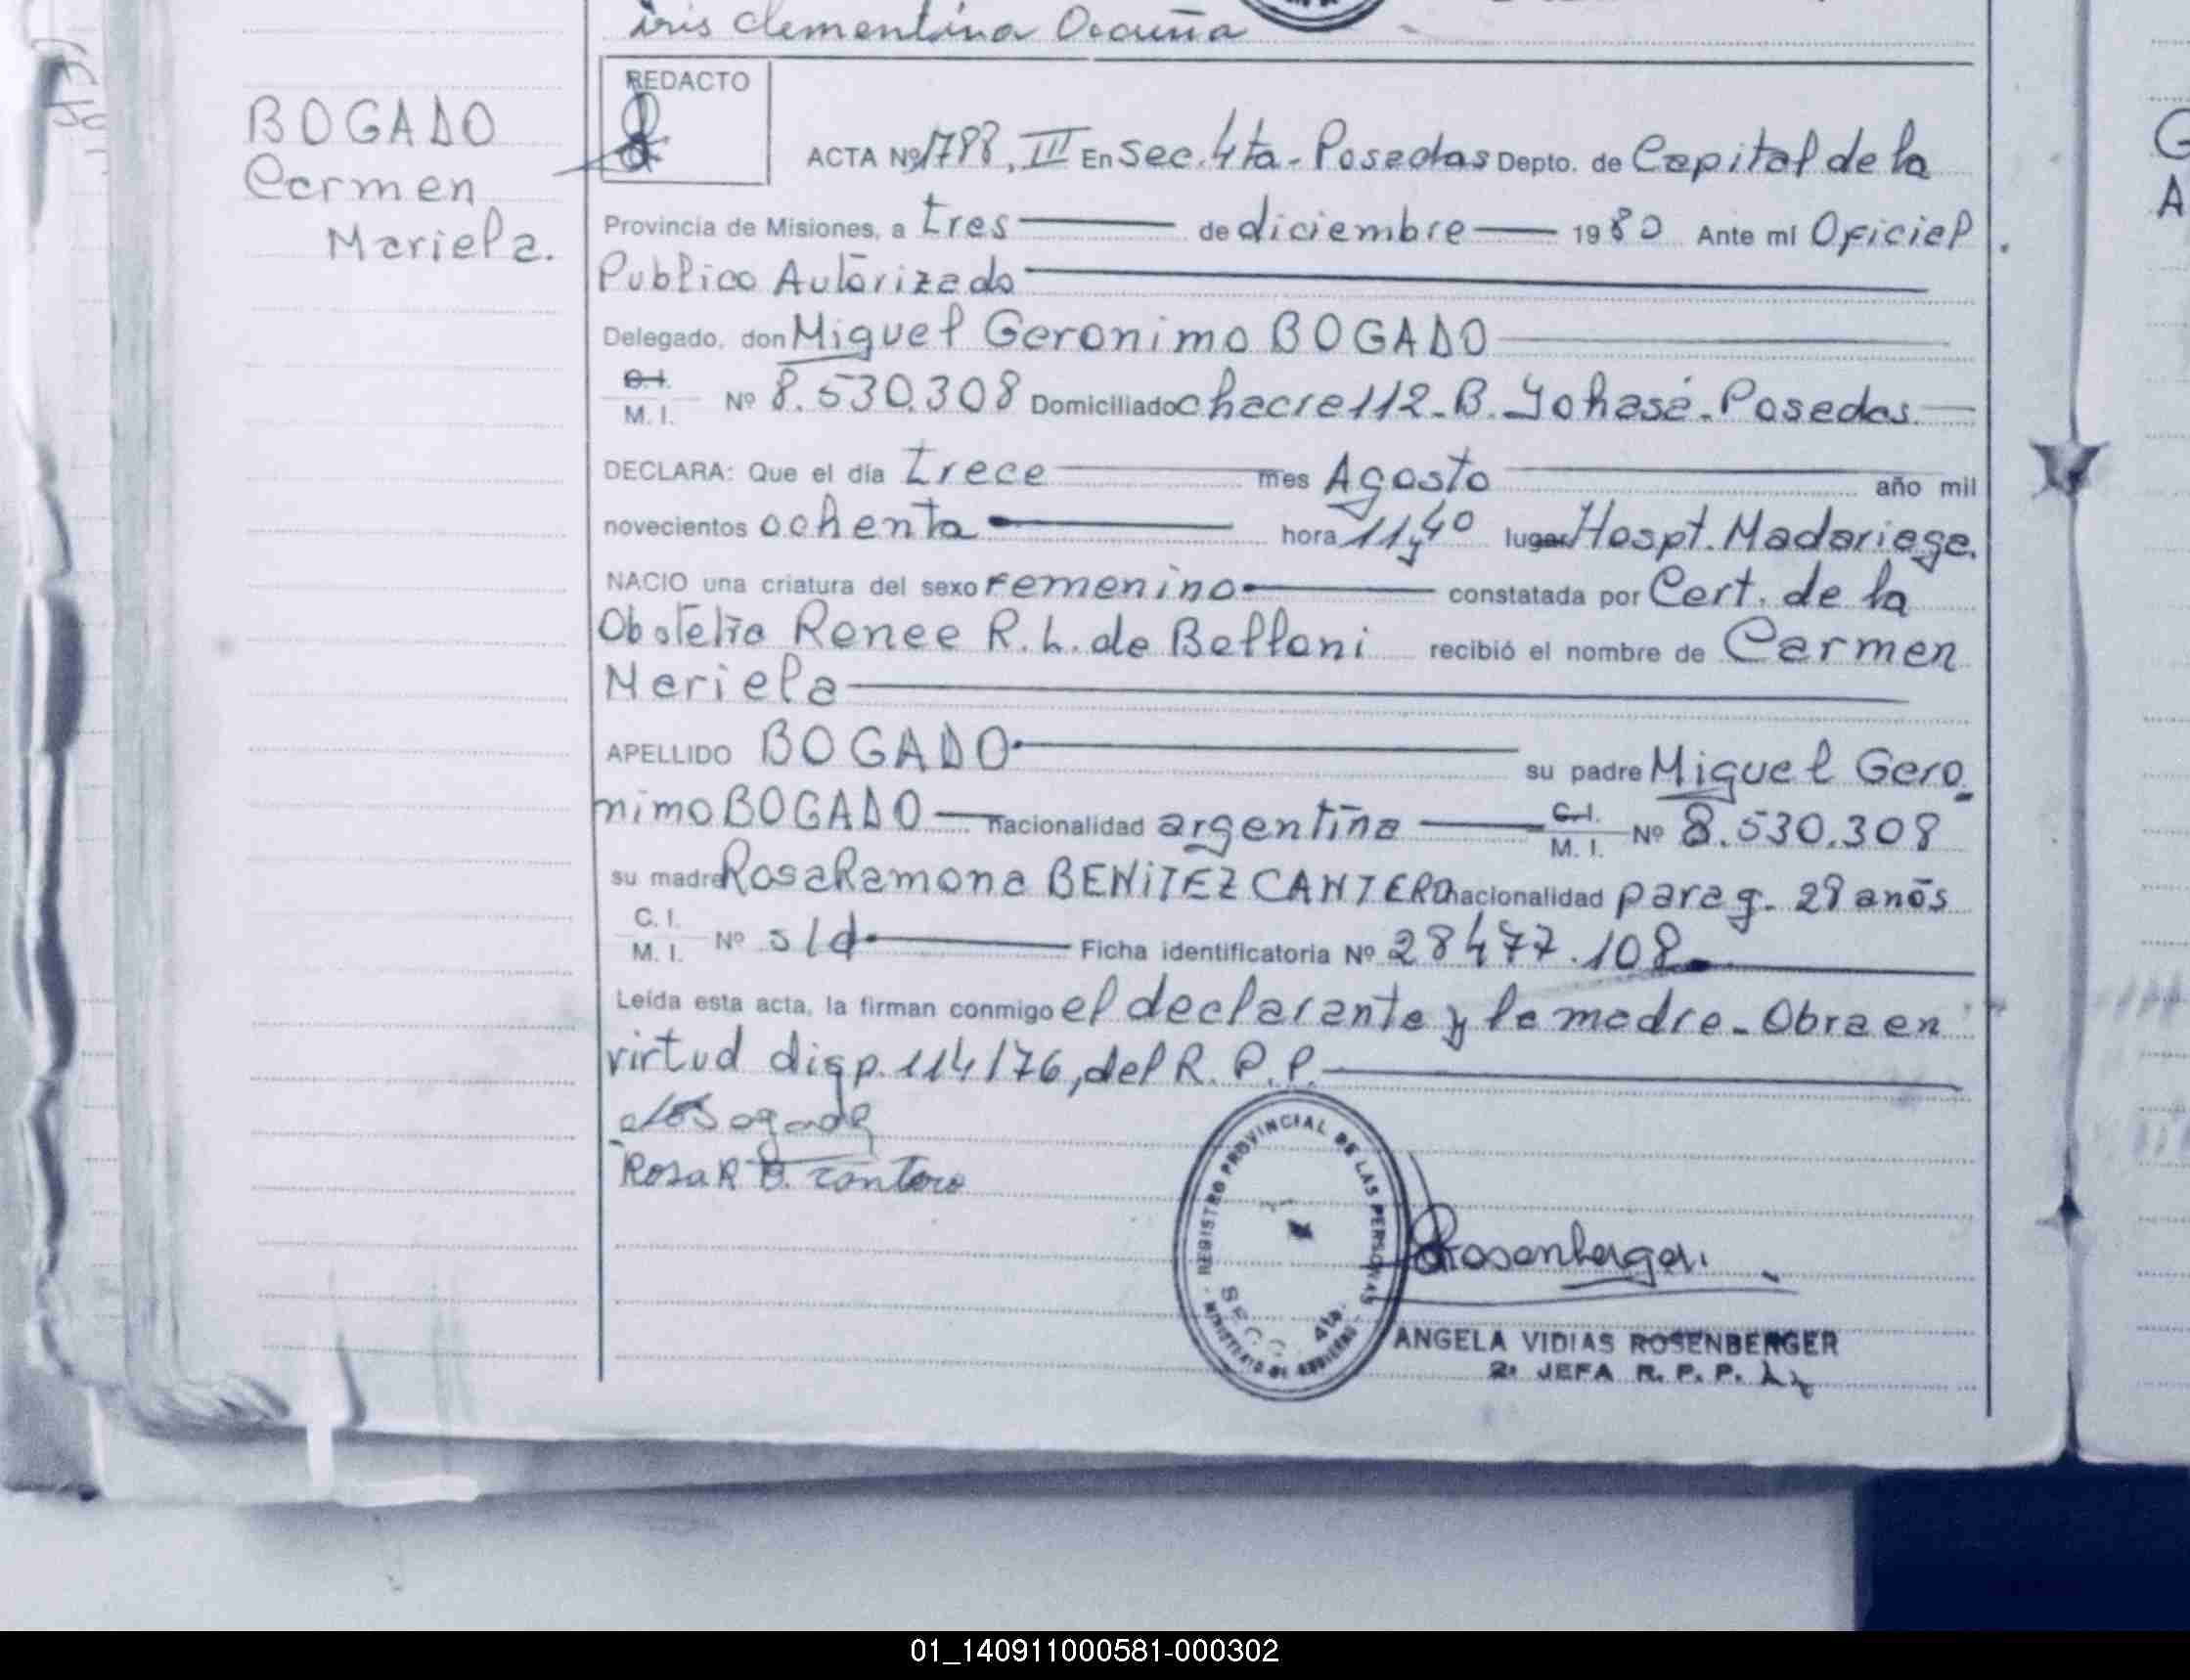 iris Clementina Ocauña
BOGADO
Carmen
Mariela.
REDACTO
ACTA Nº 1788, III En Sec. 4ta - Posadas Depto. de Capital de la
Provincia de Misiones, a tres de diciembre 1980 Ante mí Oficial
Publico Autorizado
Delegado, don Miguel Geronimo BOGADO
C.I.
M. I. Nº 8.530.308 Domiciliado chacra 112 - B. Yohasá - Posadas
DECLARA: Que el día trece mes Agosto año mil
novecientos ochenta hora 11 y 40 lugar Hospt. Madariaga.
NACIO una criatura del sexo Femenino constatada por Cert. de la
Renee R. L. de Belloni recibió el nombre de Carmen
Mariela
APELLIDO BOGADO su padre Miguel Gero
nimo BOGADO nacionalidad argentina C.I.
M. I. Nº 8.530.308
su madre Rosa Ramona BENITEZ CANTERO nacionalidad parag. 28 años
C. I.
M. I. Nº s/d Ficha identificatoria Nº 28477.108
Leída esta acta, la firman conmigo el declarante y la madre - Obra en
virtud disp. 114/76, del R. P. P.
Bogado
Rosa R B. Cantero
REGISTRO PROVINCIAL DE LAS PERSONAS
MINISTERIO DE GOBIERNO
SECC. 4ta.
Rosenberger
ANGELA VIDIAS ROSENBERGER
2ª JEFA R. P. P.
01_140911000581-000302